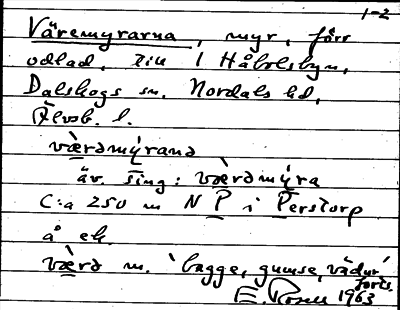 1-2
Väremyrarna, myr, förr
odlad, till 1 Håbolsbyn,
Dalskogs sn. Nordals hd,
Älvsb. l.
værəmýrana
äv. sing: værəmýra
C:a 250 m N P i Perstorp
å ek.
værə m. 'bagge, gumse, vädur'
forts.
E. Rosell 1963